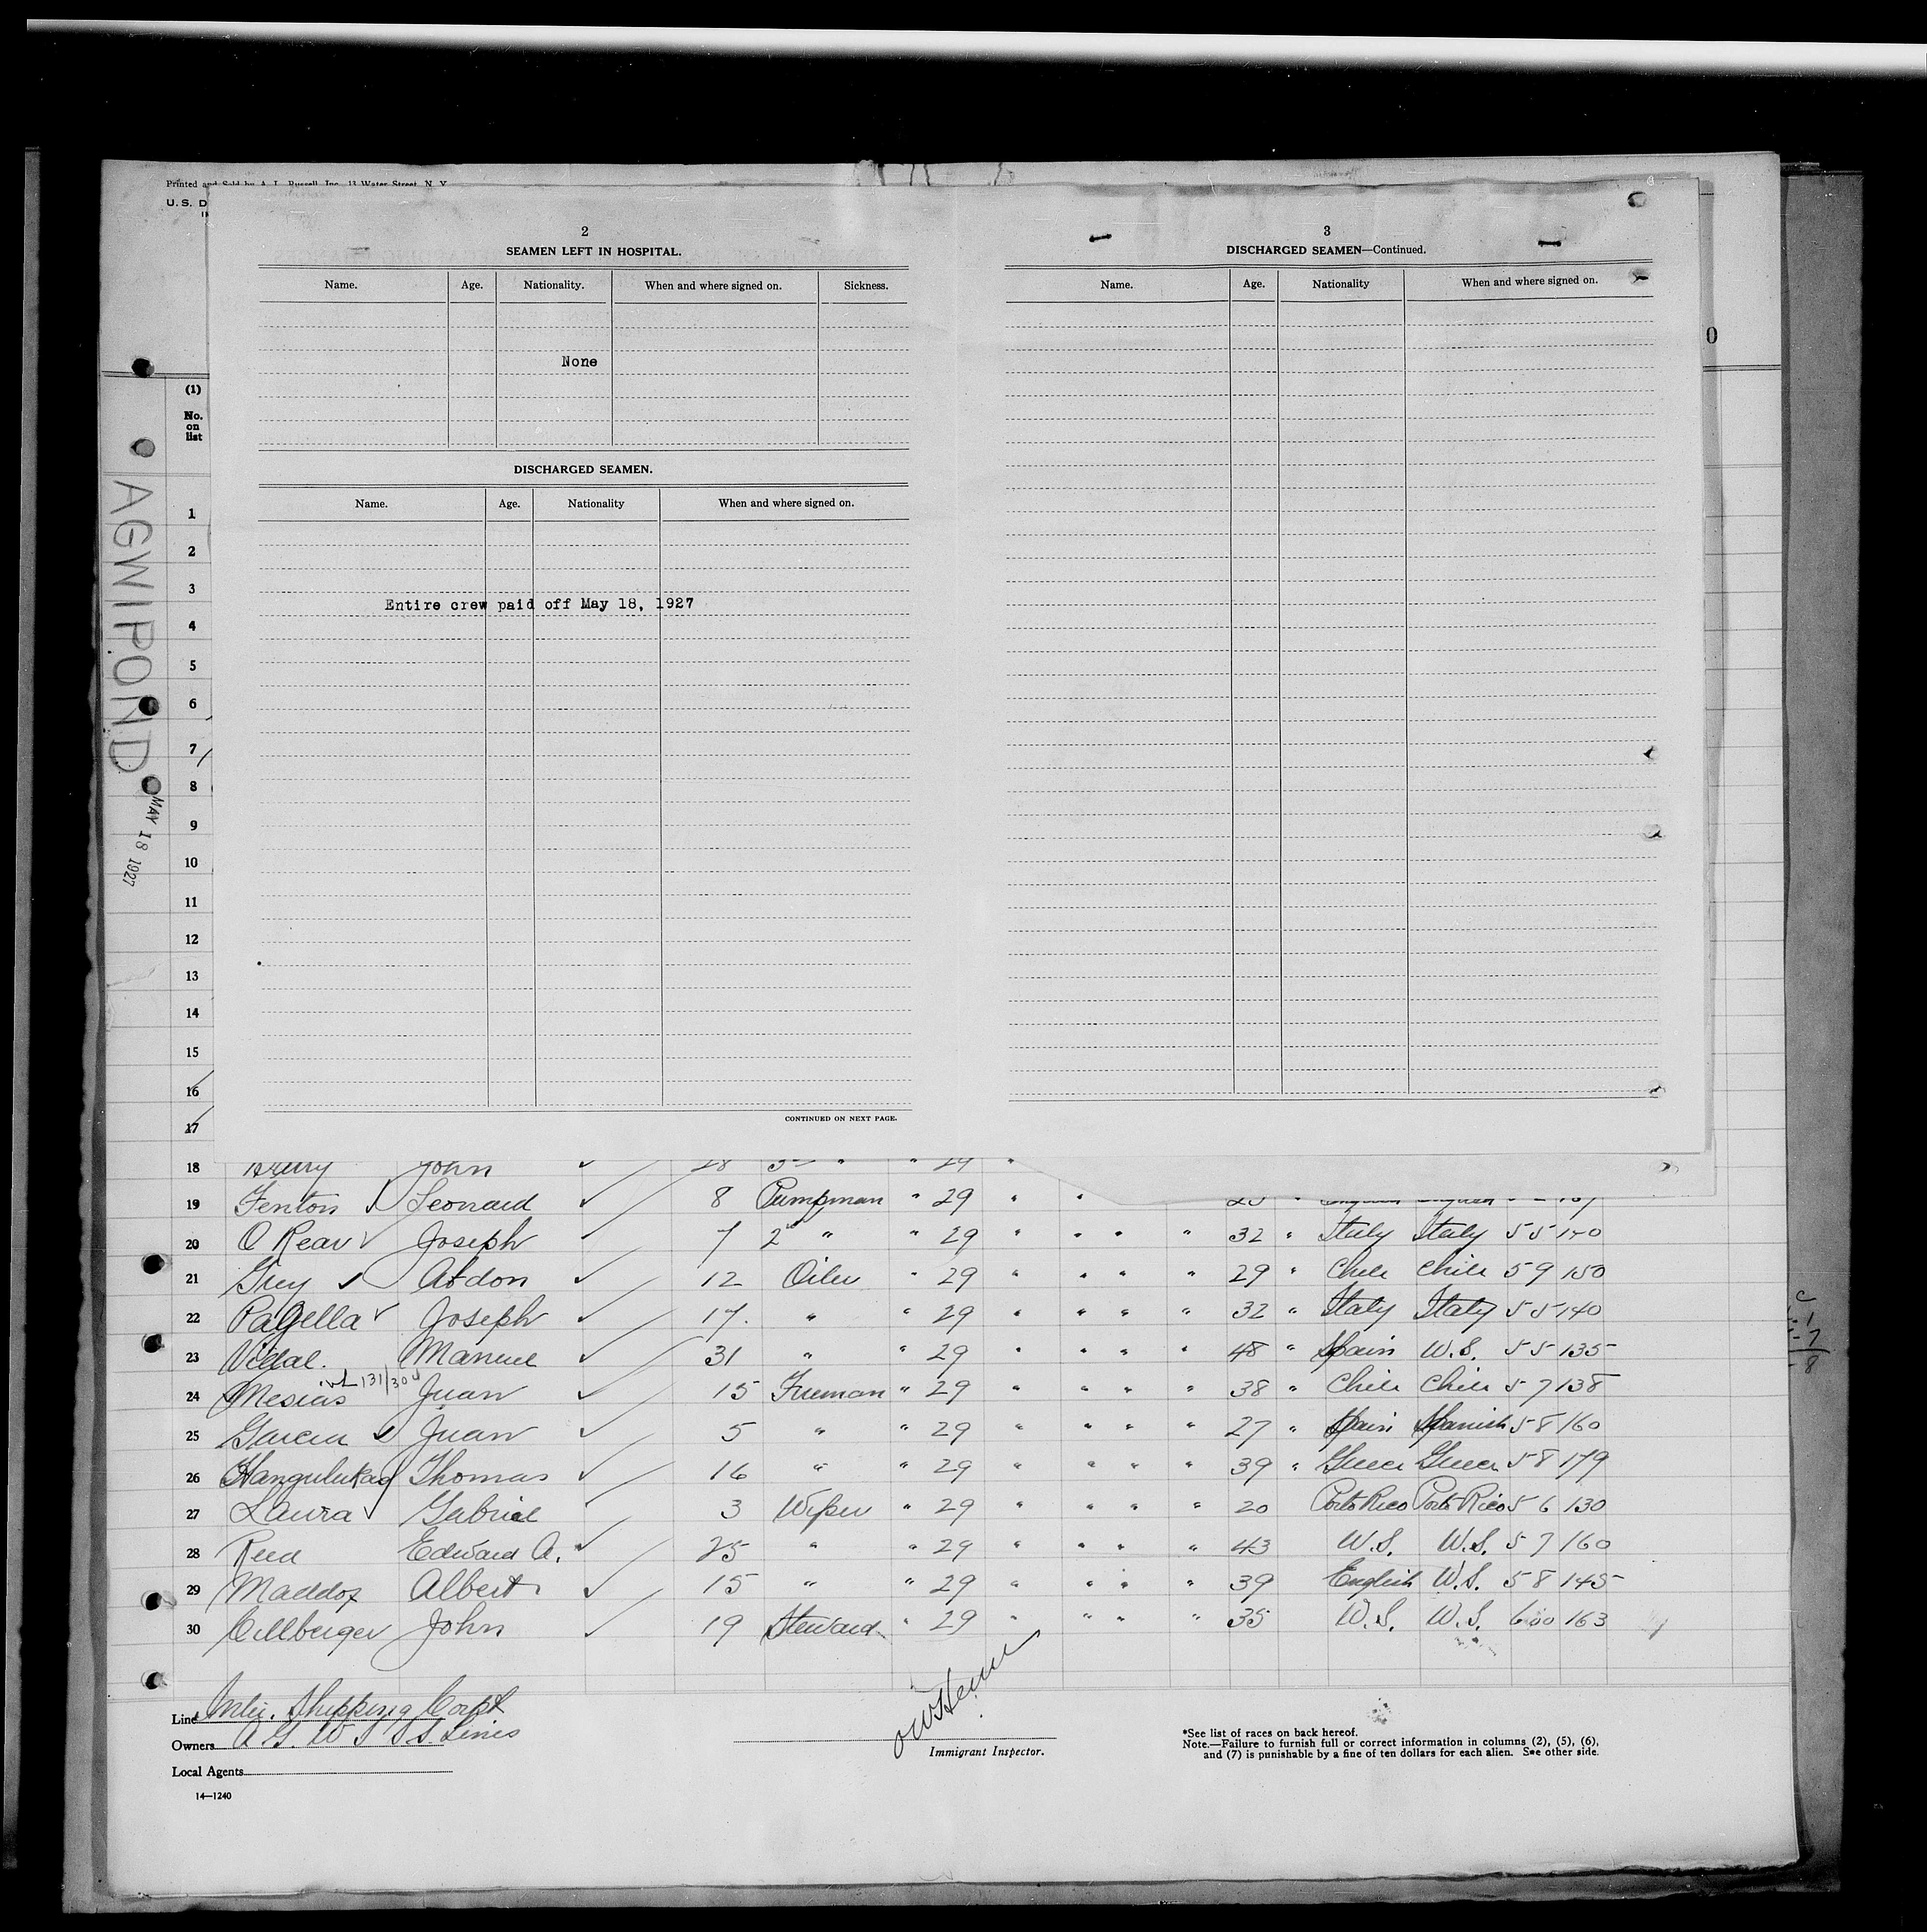 Printed and Sold by A. L. Russell, Inc. 13 Water Street, N. Y.
U. S. D
2
SEAMEN LEFT IN HOSPITAL.
Name. Age. Nationality. When and where signed on. Sickness.
None
DISCHARGED SEAMEN.
Name. Age. Nationality When and where signed on.
Entire crew paid off May 18, 1927
CONTINUED ON NEXT PAGE.
3
DISCHARGED SEAMEN—Continued.
Name. Age. Nationality When and where signed on.
0
(1)
No.
on
list
AGWIPOND
MAY 18 1927
1
2
3
4
5
6
7
8
9
10
11
12
13
14
15
16
17
18 John
19 Fenton Leonard 8 Pumpman " 29 " "
20 O Rear Joseph 7 2" " " 29 " " " " 32 " Italy Italy 5 5 140
21 Grey Abdon 12 Oiler " 29 " " " " 29 " Chile Chile 5 9 150
22 Pagella Joseph 17. " " 29 " " " " 32 " Italy Italy 5 5 140
23 Vidal. Manuel 31 " " 29 " " " " 48 " Spain U.S. 5 5 135
131/300
24 Mesias Juan 15 Fireman " 29 " " " " 38 " Chile Chile 5 7 138
25 Garcia Juan 5 " " 29 " " " " 27 " Spain Spanish 5 8 160
26 Thomas 16 " " 29 " " " " 39 " Greece Greece 5 8 179
27 Laura Gabriel 3 Wiper " 29 " " " " 20 Porto Rico Porto Rico 5 6 130
28 Reed Edward A. 25 " " 29 " " " " 43 U.S. U.S. 5 7 160
29 Maddox Albert 15 " " 29 " " " " 39 English U.S. 5 8 145
30 Cillberger John 19 Steward " 29 " " " " 35 U.S. U.S. 6 00 163
Line Shipping Corp
Owners A G. W I S.S. Lines
Local Agents
14—1240
Immigrant Inspector.
*See list of races on back hereof.
Note.—Failure to furnish full or correct information in columns (2), (5), (6),
and (7) is punishable by a fine of ten dollars for each alien. See other side.